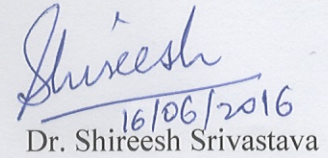 Shireesh
16/06/2016
Dr. Shireesh Srivastava